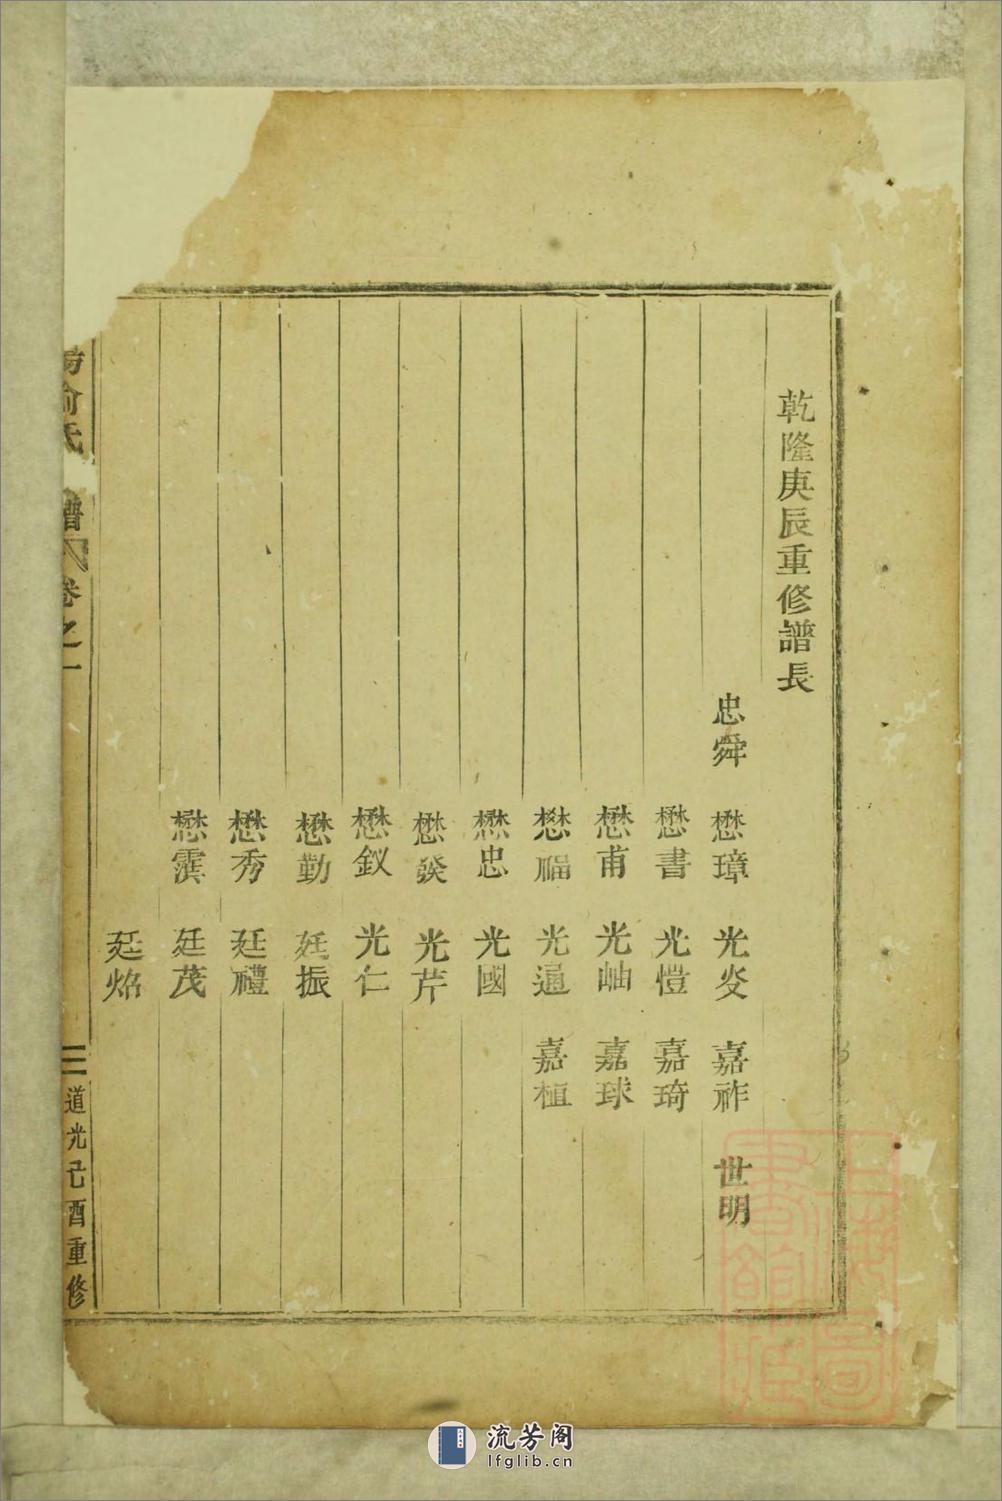 乾隆庚辰重修譜長
忠舜 懋璋 光炎 嘉祚 世明
懋書 光愷 嘉琦
懋甫 光岫 嘉球
懋福 光逼 嘉植
懋忠 光國
懋發 光芹
懋釵 光仁
懋勤 廷振
懋秀 廷禮
懋霣 廷茂
廷焰
俞氏 譜 卷之一
三 道光己酉重修
上海圖書館藏
流芳阁
lfglib.cn